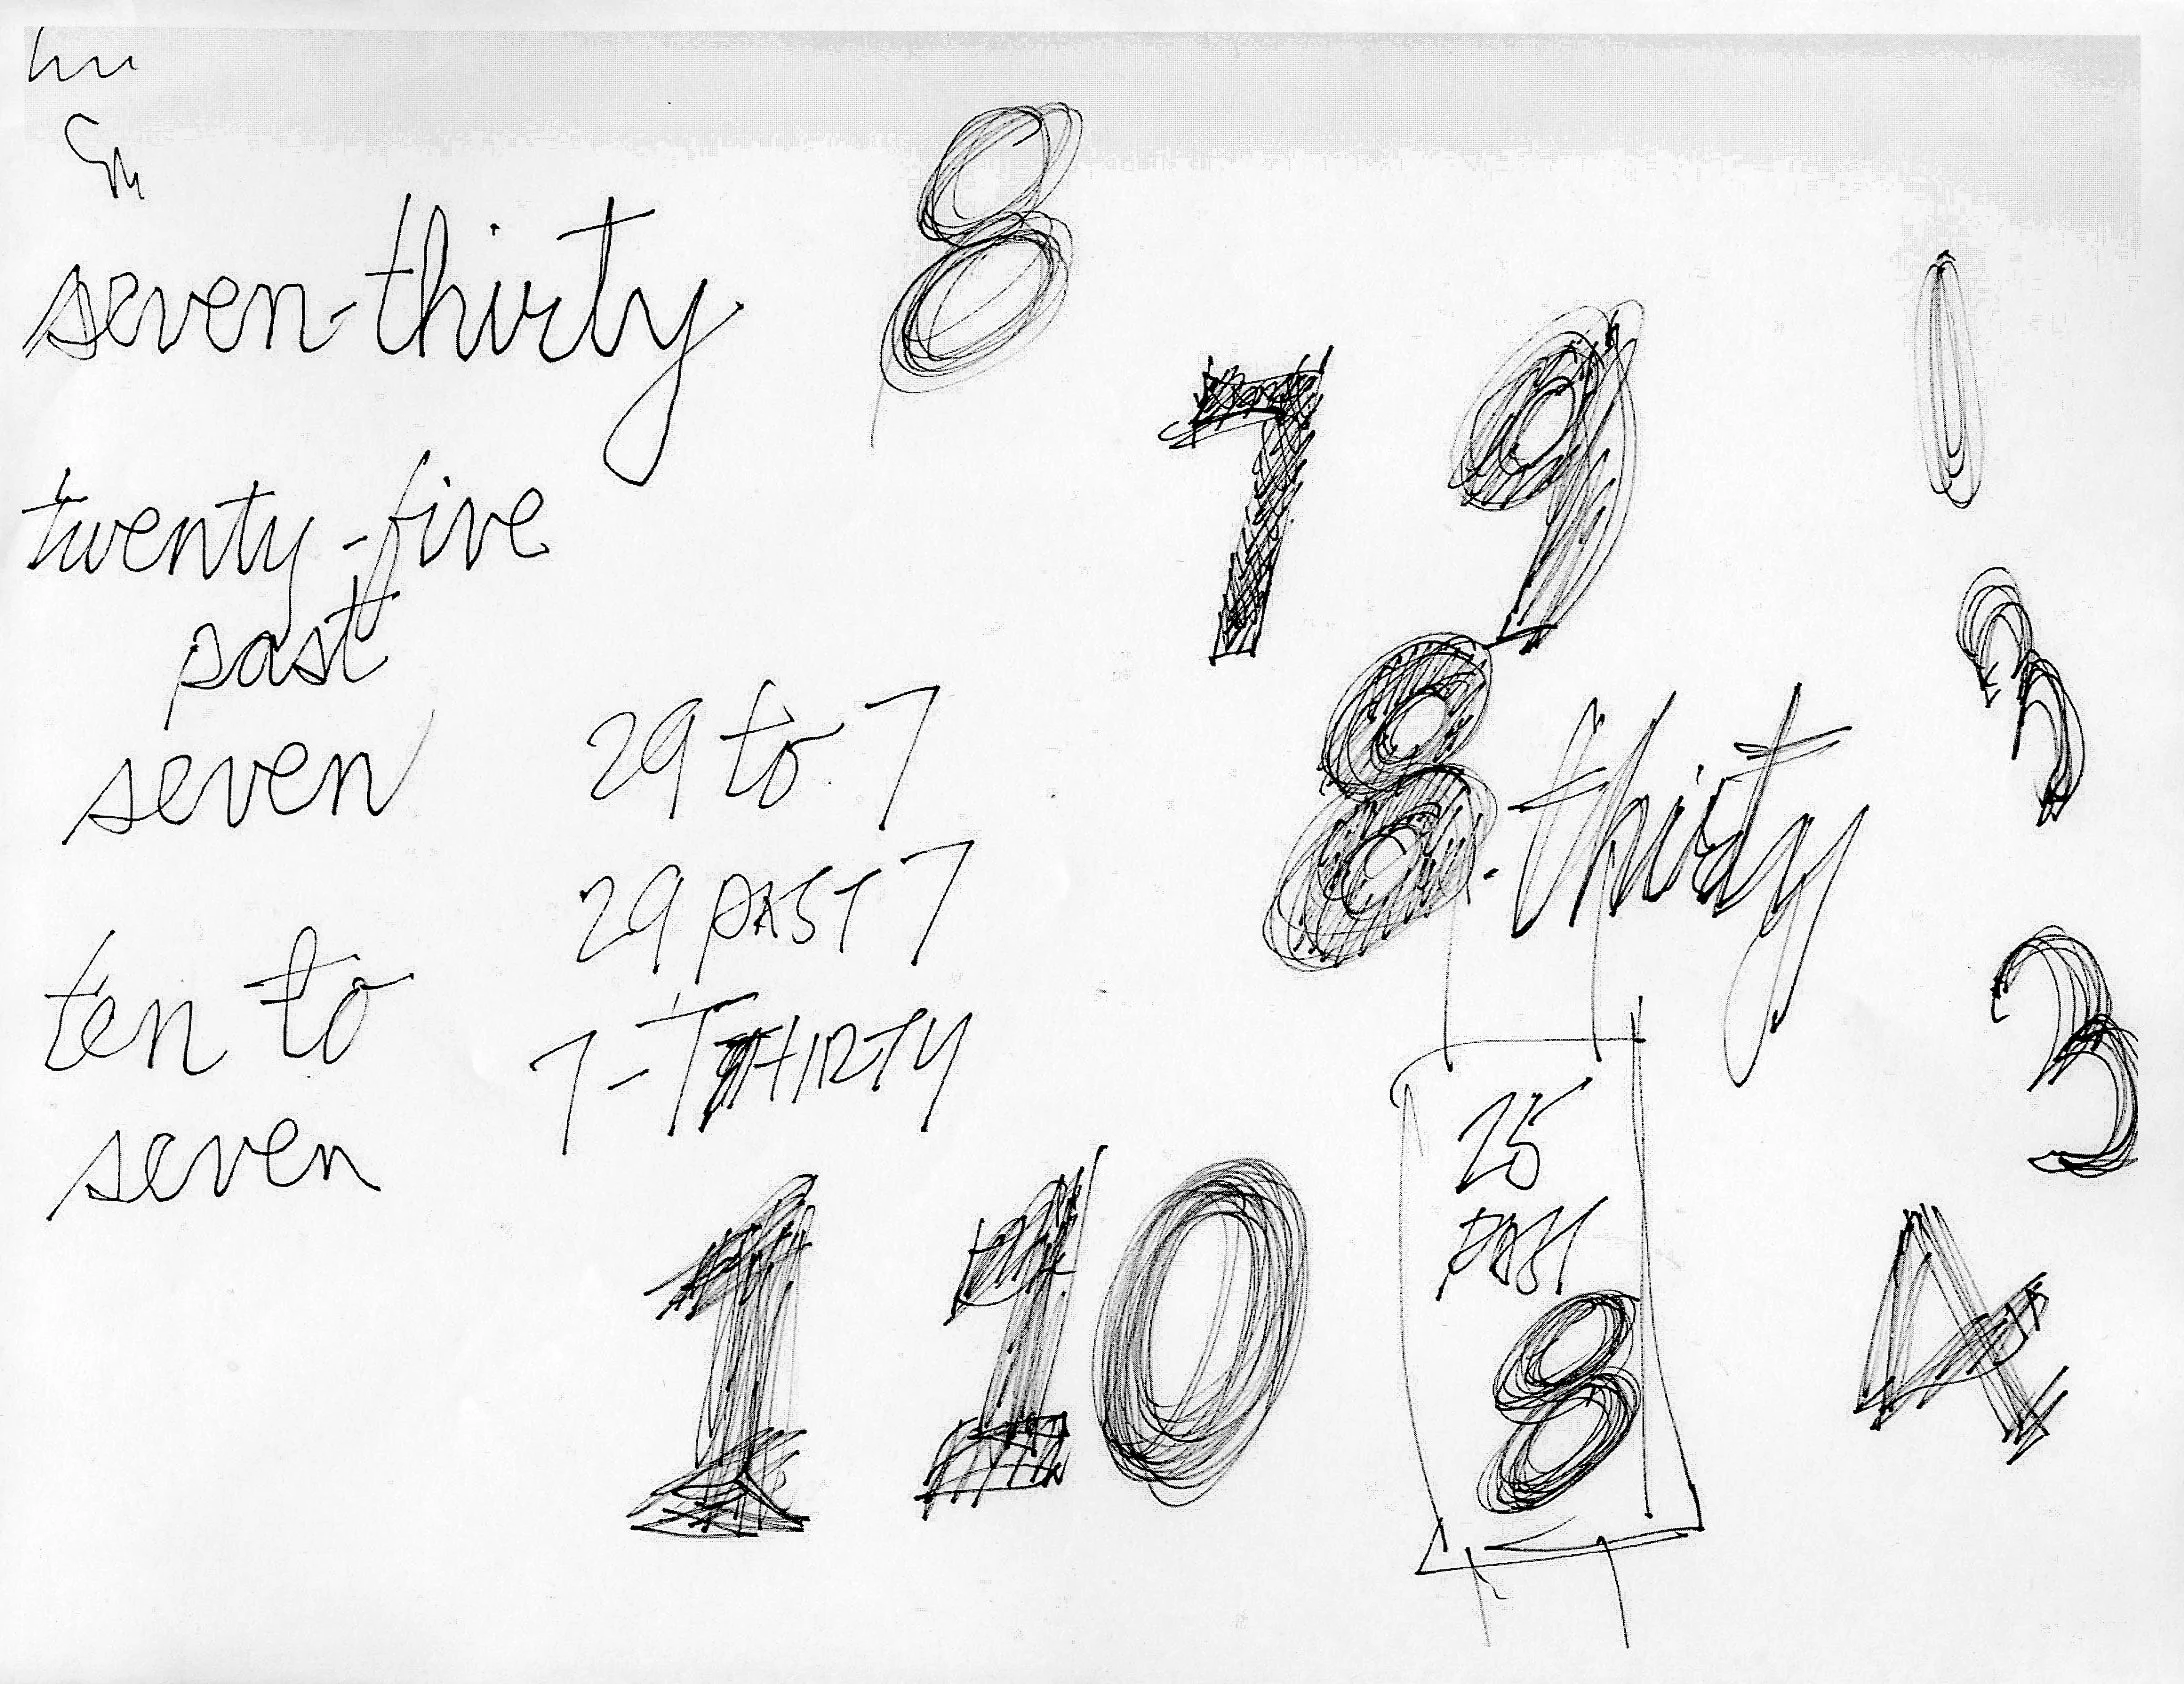 seven-thirty
twenty-five
past
seven
ten to
seven
29 to 7
29 PAST 7
7-THIRTY
8
7
9
8-thirty
25
PAST
8
1
10
1
2
3
4